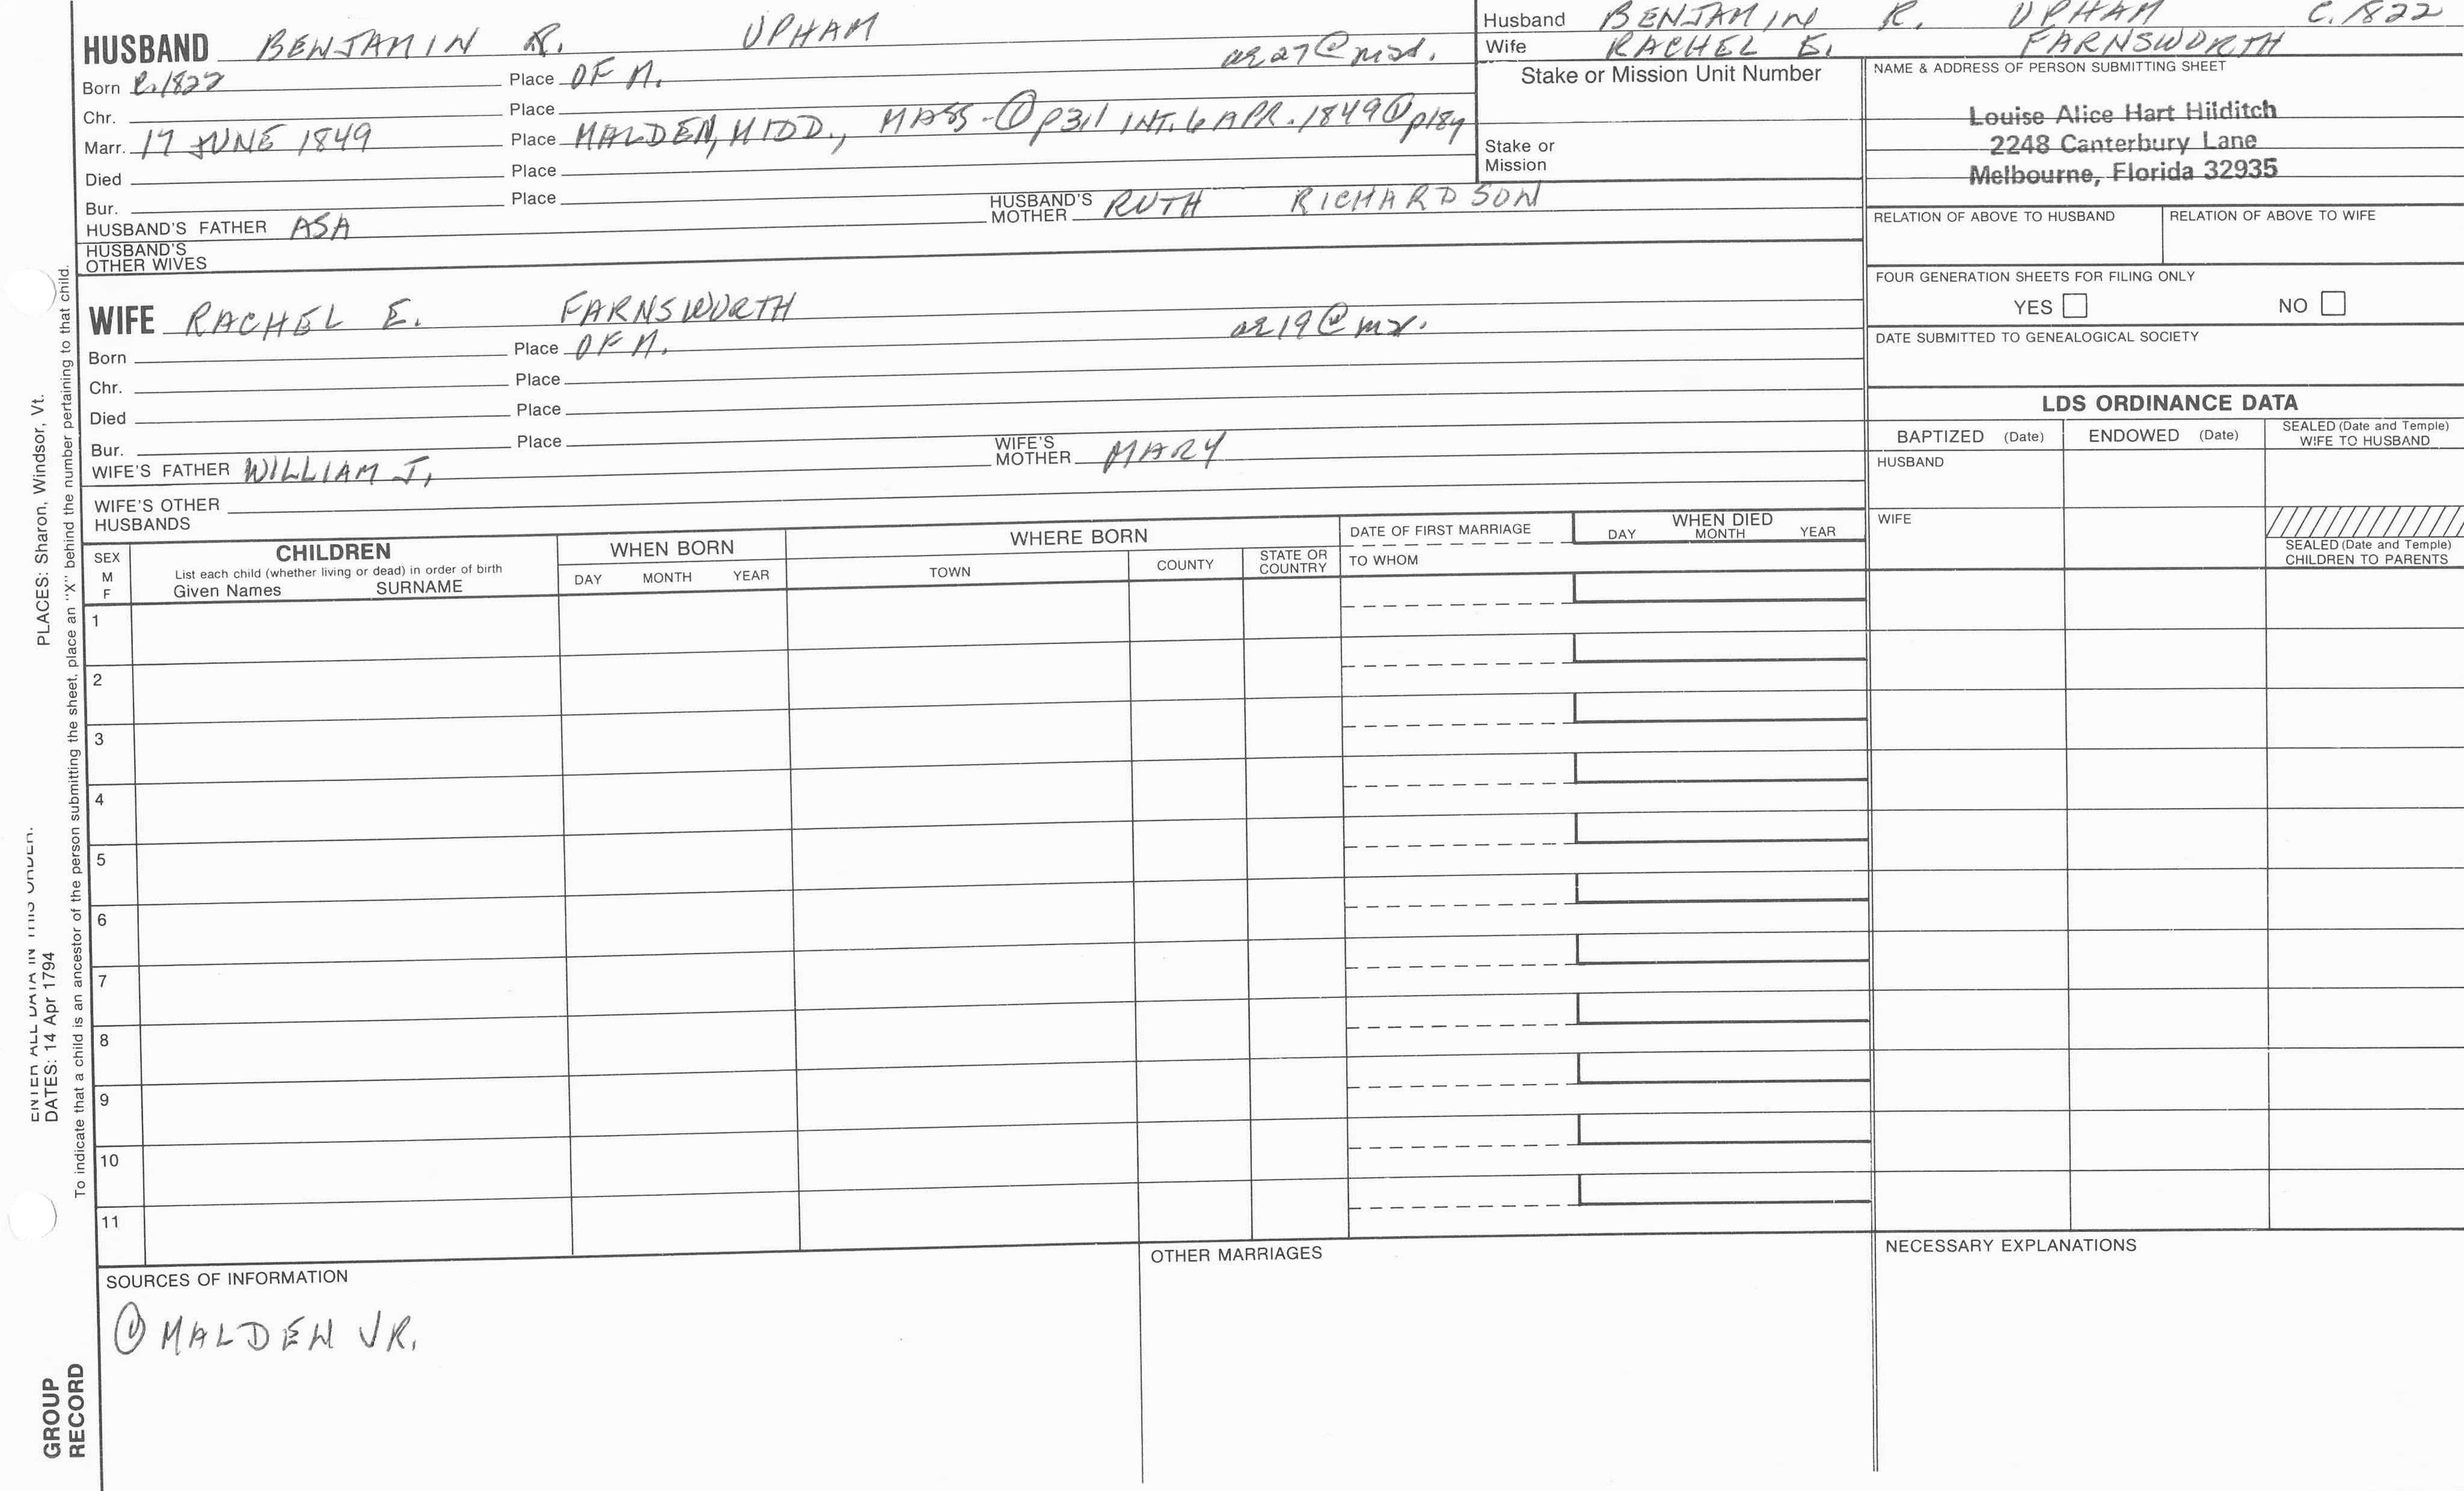 HUSBAND BENJAMIN R. UPHAM ae 27 @ md.
Born C. 1822 Place OF M.
Chr. Place
Marr. 17 JUNE 1849 Place MALDEN, MIDD., MASS. ① p311 INT. 6 APR. 1849 ① p189
Died Place
Bur. Place
HUSBAND'S FATHER ASA HUSBAND'S MOTHER RUTH RICHARDSON
HUSBAND'S OTHER WIVES
Husband BENJAMIN R. UPHAM C. 1822
Wife RACHEL E. FARNSWORTH
Stake or Mission Unit Number
Stake or
Mission
NAME & ADDRESS OF PERSON SUBMITTING SHEET
Louise Alice Hart Hilditch
2248 Canterbury Lane
Melbourne, Florida 32935
RELATION OF ABOVE TO HUSBAND RELATION OF ABOVE TO WIFE
FOUR GENERATION SHEETS FOR FILING ONLY
YES NO
DATE SUBMITTED TO GENEALOGICAL SOCIETY
WIFE RACHEL E. FARNSWORTH ae 19 @
Born Place OF M.
Chr. Place
Died Place
Bur. Place
WIFE'S FATHER WILLIAM J. WIFE'S MOTHER MARY
WIFE'S OTHER
HUSBANDS
LDS ORDINANCE DATA
BAPTIZED (Date) ENDOWED (Date) SEALED (Date and Temple)
WIFE TO HUSBAND
HUSBAND
WIFE
SEALED (Date and Temple)
CHILDREN TO PARENTS
SEX
M
F
CHILDREN
List each child (whether living or dead) in order of birth
Given Names SURNAME
WHEN BORN
DAY MONTH YEAR
WHERE BORN
TOWN COUNTY STATE OR COUNTRY
DATE OF FIRST MARRIAGE
TO WHOM
WHEN DIED
DAY MONTH YEAR
1
2
3
4
5
6
7
8
9
10
11
SOURCES OF INFORMATION
① MALDEN VR.
OTHER MARRIAGES
NECESSARY EXPLANATIONS
ENTER ALL DATA IN THIS ORDER:
DATES: 14 Apr 1794 PLACES: Sharon, Windsor, Vt.
To indicate that a child is an ancestor of the person submitting the sheet, place an "X" behind the number pertaining to that child.
GROUP
RECORD